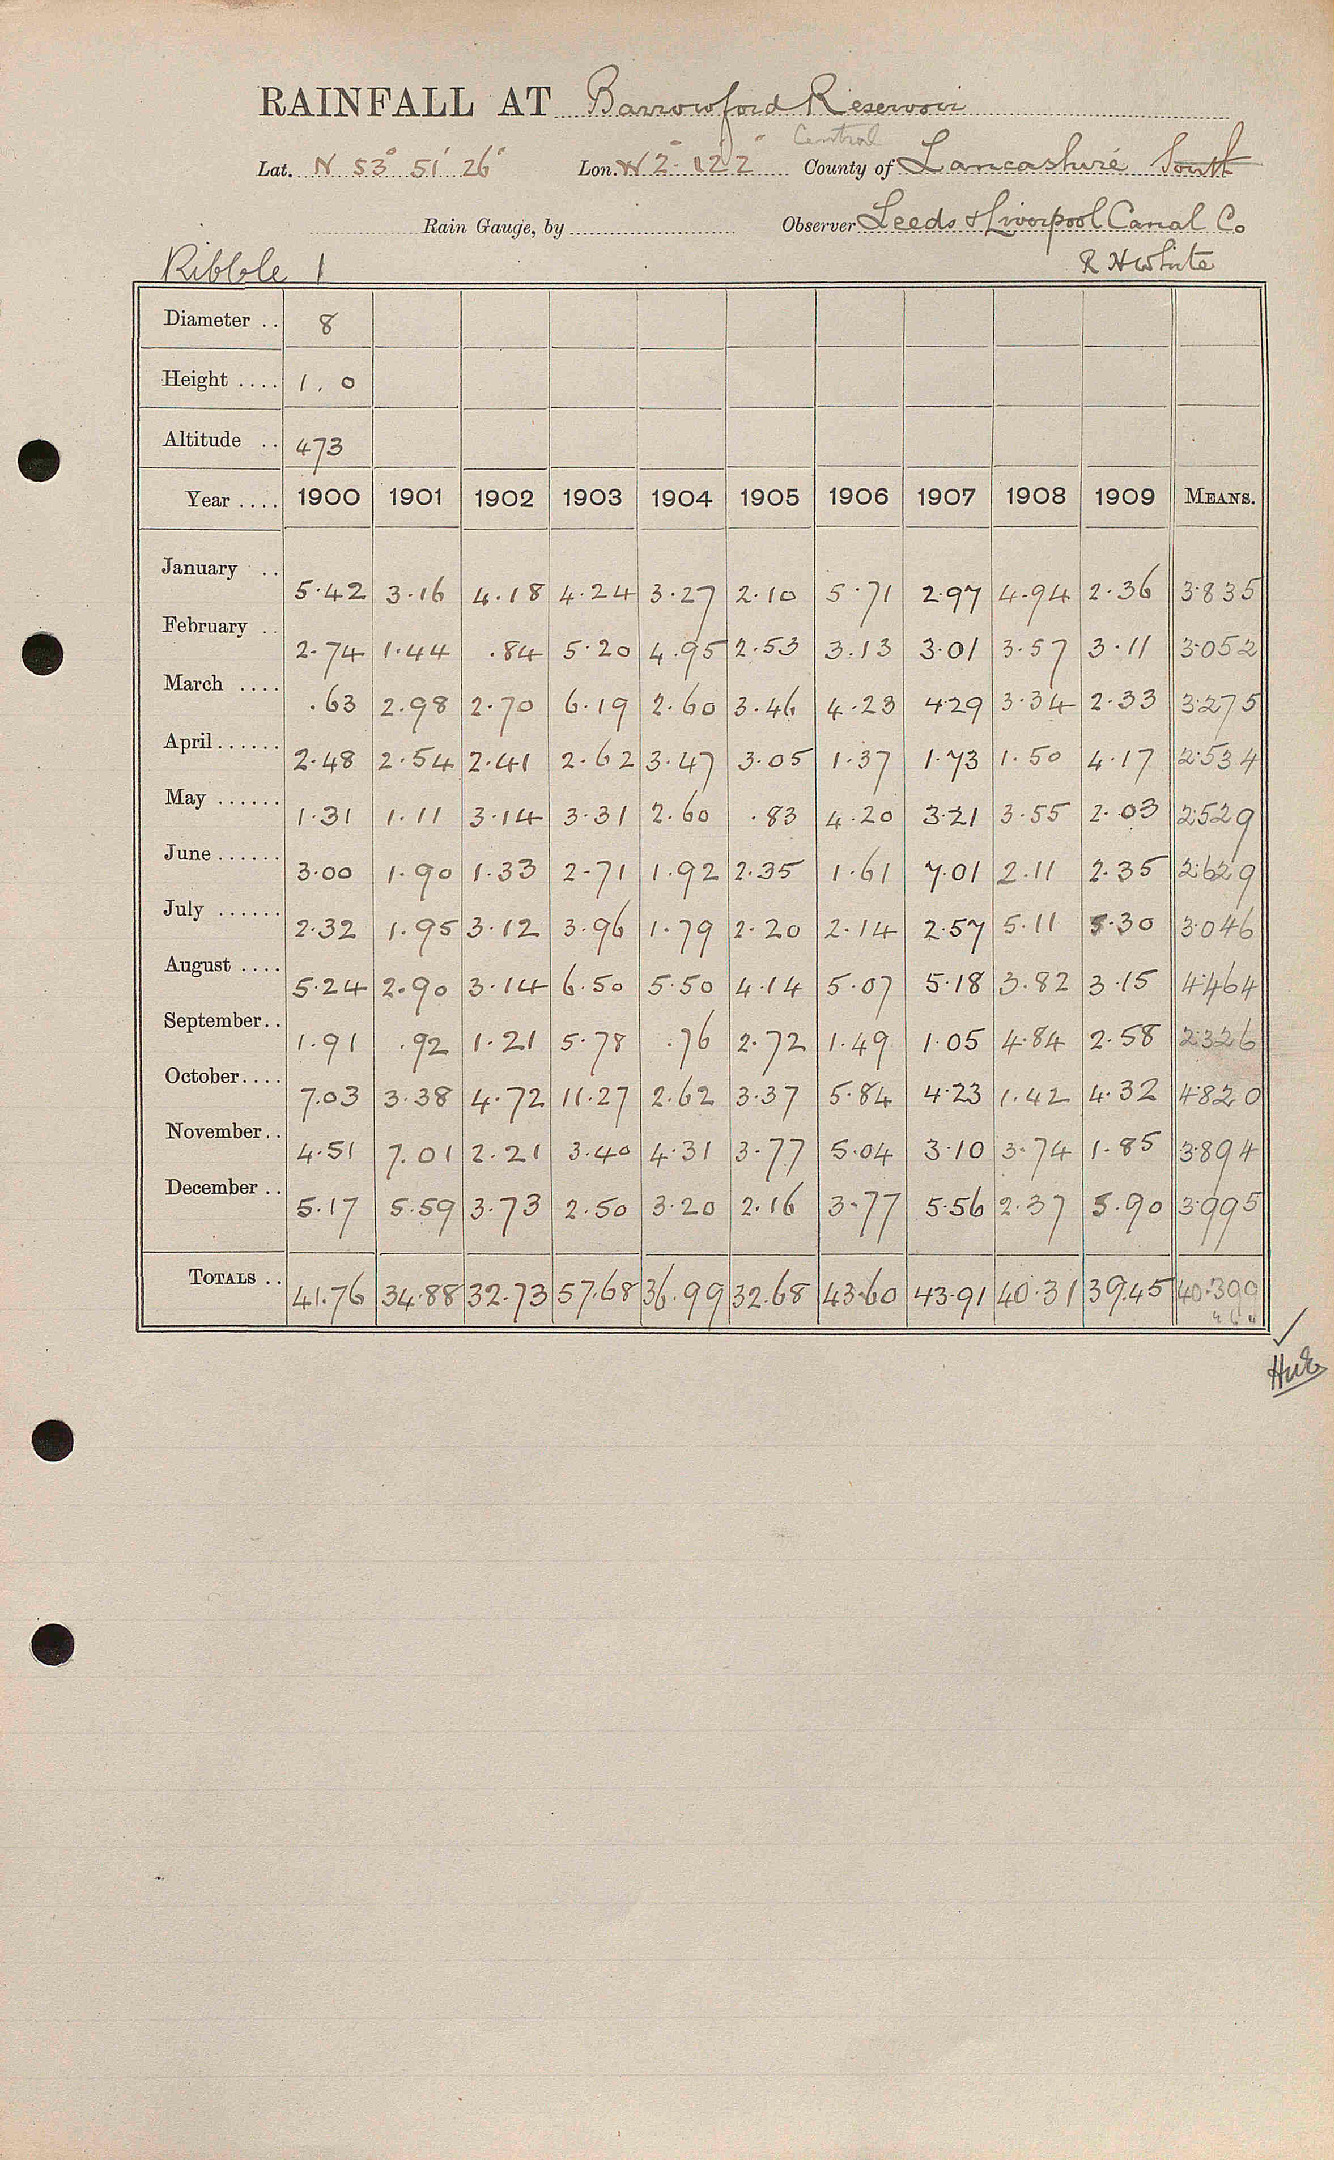 RAINFALL AT Barrowford Reservoir
Central
Lat. N 53° 51' 26" Lon. W 2° 12' 2" County of Lancashire South
Rain Gauge, by Observer Leeds & Liverpool Canal Co
Ribble 1 R H White
Diameter .. 8
Height .... 1.0
Altitude .. 473
Year .... 1900 1901 1902 1903 1904 1905 1906 1907 1908 1909 MEANS.
January .. 5.42 3.16 4.18 4.24 3.27 2.10 5.71 2.97 4.94 2.36 3.835
February .. 2.74 1.44 .84 5.20 4.95 2.53 3.13 3.01 3.57 3.11 3.052
March .... .63 2.98 2.70 6.19 2.60 3.46 4.23 4.29 3.34 2.33 3.275
April ...... 2.48 2.54 2.41 2.62 3.47 3.05 1.37 1.73 1.50 4.17 2.534
May ...... 1.31 1.11 3.14 3.31 2.60 .83 4.20 3.21 3.55 2.03 2.529
June ...... 3.00 1.90 1.33 2.71 1.92 2.35 1.61 7.01 2.11 2.35 2.629
July ...... 2.32 1.95 3.12 3.96 1.79 2.20 2.14 2.57 5.11 5.30 3.046
August .... 5.24 2.90 3.14 6.50 5.50 4.14 5.07 5.18 3.82 3.15 4.464
September .. 1.91 .92 1.21 5.78 .76 2.72 1.49 1.05 4.84 2.58 2.326
October .... 7.03 3.38 4.72 11.27 2.62 3.37 5.84 4.23 1.42 4.32 4.820
November .. 4.51 7.01 2.21 3.40 4.31 3.77 5.04 3.10 3.74 1.85 3.894
December .. 5.17 5.59 3.73 2.50 3.20 2.16 3.77 5.56 2.37 5.90 3.995
TOTALS .. 41.76 34.88 32.73 57.68 36.99 32.68 43.60 43.91 40.31 39.45 40.399